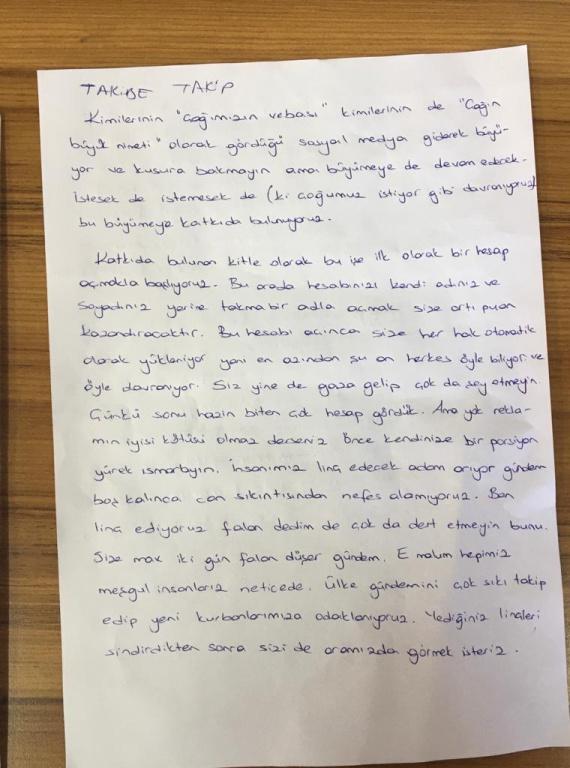 TAKİBE TAKİP
Kimilerinin "çağımızın vebası" kimilerinin de "Çağın
büyük nimeti" olarak gördüğü sosyal medya giderek büyü-
yor ve kusura bakmayın ama büyümeye de devam edecek.
İstesek de istemesek de (ki çoğumuz istiyor gibi davranıyoruz)
bu büyümeye katkıda bulunuyoruz.
Katkıda bulunan kitle olarak bu işe ilk olarak bir hesap
açmakla başlıyoruz. Bu arada hesabınızı kendi adınız ve
soyadınız yerine takma bir adla açmak size artı puan
kazandıracaktır. Bu hesabı açınca size her hak otomatik
olarak yükleniyor yani en azından şu an herkes öyle biliyor ve
öyle davranıyor. Siz yine de gaza gelip çok da şey etmeyin.
Çünkü sonu hazin biten çok hesap gördük. Ama yok rekla-
mın iyisi kötüsü olmaz derseniz önce kendinize bir porsiyon
yürek ısmarlayın. İnsanımız linç edecek adam arıyor gündem
boş kalınca can sıkıntısından nefes alamıyoruz. Ben
linç ediyoruz falan dedim de çok da dert etmeyin bunu.
Size max iki gün falan düşer gündem. E malum hepimiz
meşgul insanlarız neticede. Ülke gündemini çok sıkı takip
edip yeni kurbanlarımıza odaklanıyoruz. Yediğiniz linçleri
sindirdikten sonra sizi de aramızda görmek isteriz.